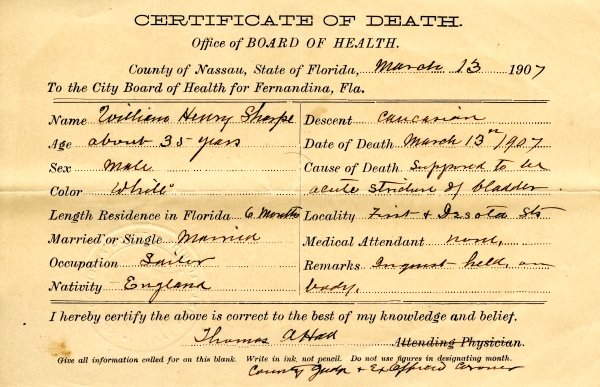 CERTIFICATE OF DEATH.
Office of BOARD OF HEALTH.
County of Nassau, State of Florida, March 13 1907
To the City Board of Health for Fernandina, Fla.
Name William Henry Sharpe
Age about 35 years
Sex Male
Color White
Length Residence in Florida 6 Months
Married or Single Married
Occupation Sailor
Nativity England
Descent Caucasian
Date of Death March 13th 1907
Cause of Death Supposed to be
acute stricture of bladder
Locality First & Desota Sts
Medical Attendant none,
Remarks Inquest held, on
body,
I hereby certify the above is correct to the best of my knowledge and belief.
Thomas A Hall Attending Physician.
Give all information called for on this blank. Write in ink, not pencil. Do not use figures in designating month.
County Judge & Ex Officio Coroner